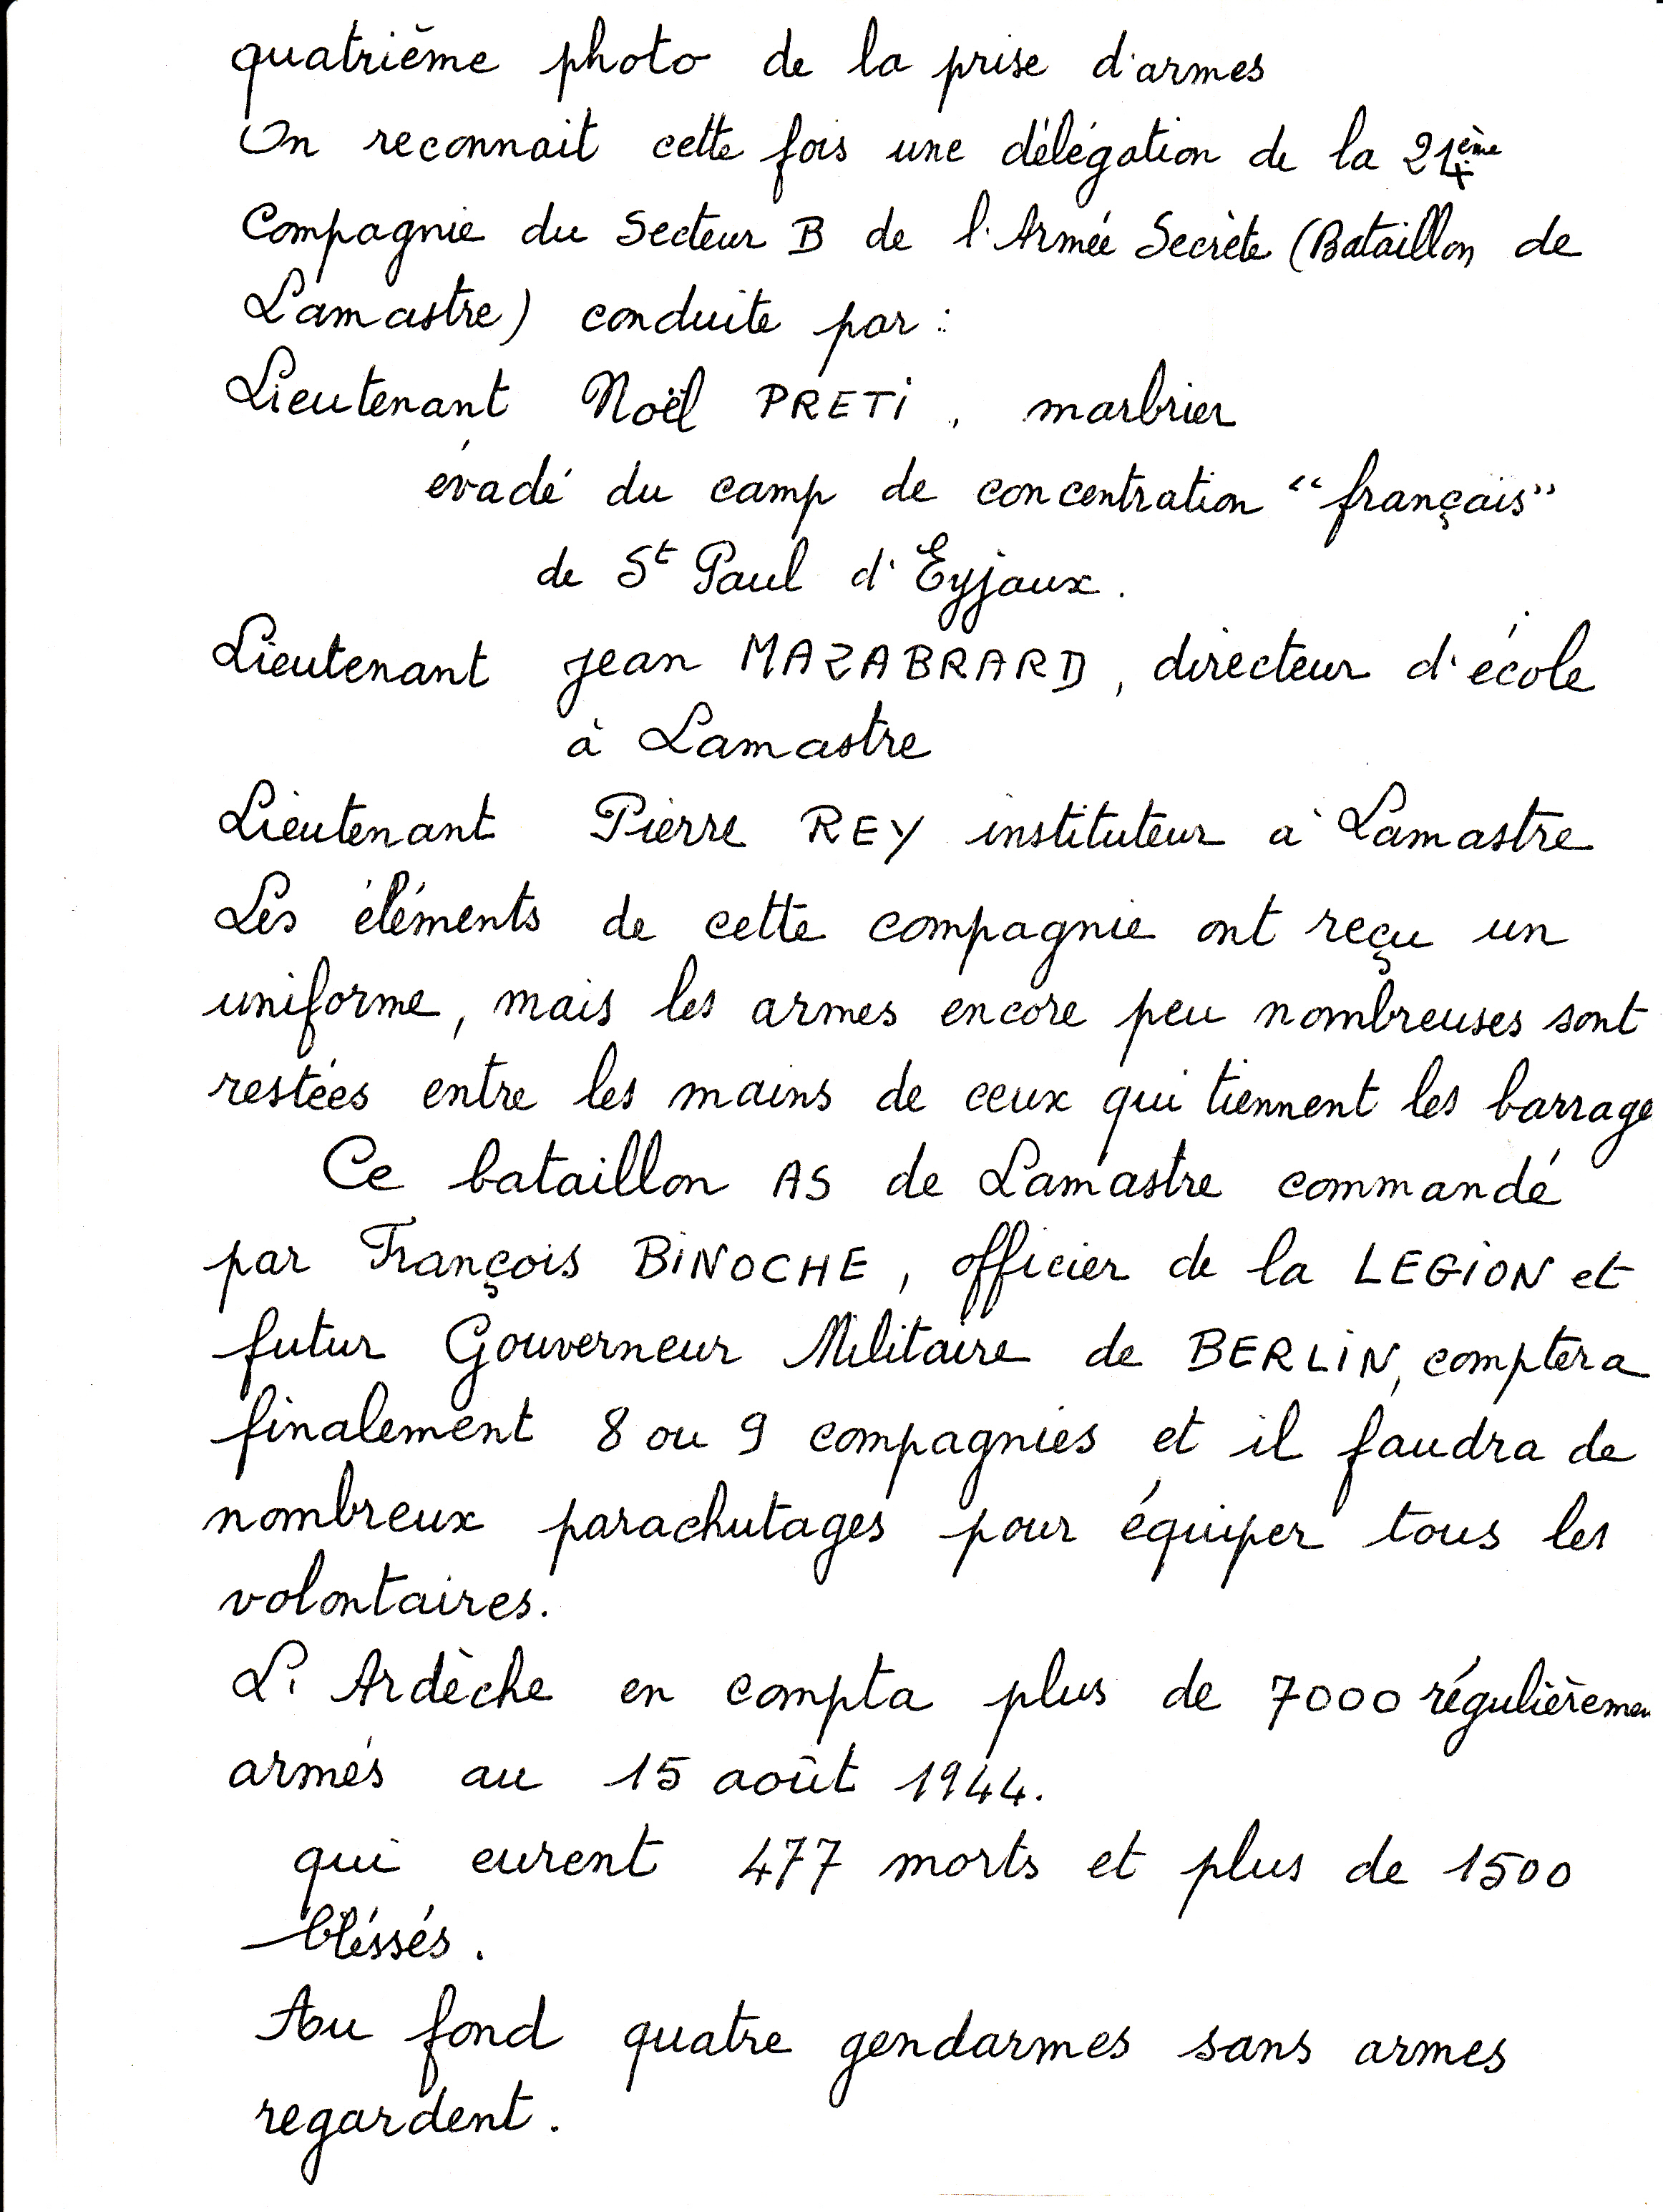 quatrième photo de la prise d'armes
On reconnait cette fois une délégation de la 21ème
Compagnie du Secteur B de l'Armée Secrète (Bataillon de
Lamastre) conduite par :
Lieutenant Noël PRETI, marbrier
évadé du camp de concentration "français"
de St Paul d'Eyjaux.
Lieutenant jean MAZABRARD, directeur d'école
à Lamastre
Lieutenant Pierre REY instituteur à Lamastre
Les éléments de cette compagnie ont reçu un
uniforme, mais les armes encore peu nombreuses sont
restées entre les mains de ceux qui tiennent les barrage
Ce bataillon AS de Lamastre commandé
par François BINOCHE, officier de la LEGION et
futur Gouverneur Militaire de BERLIN, comptera
finalement 8 ou 9 compagnies et il faudra de
nombreux parachutages pour équiper tous les
volontaires.
L'Ardèche en compta plus de 7000 régulièremen
armés au 15 août 1944.
qui eurent 477 morts et plus de 1500
bléssés.
Au fond quatre gendarmes sans armes
regardent.